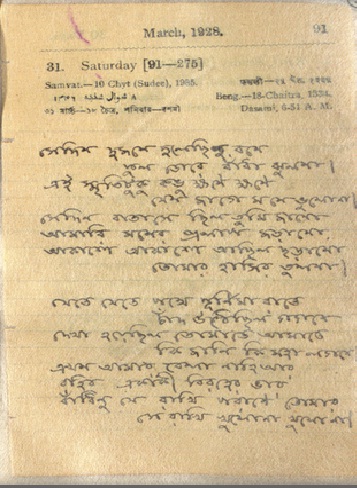 March, 1928. 91
31. Saturday [91—275]
Samvat.—10 Chyt (Sudee), 1985.
Beng.—18-Chaitra, 1334.
Dasami, 6-51 A. M.
সেদিন দুজনে দুলেছিনু বনে
ফুল ডোরে বাঁধা ঝুলনা।
এই স্মৃতিটুকু কভু ক্ষণে ক্ষণে
যেন জাগে মনে ভুলোনা।
সেদিন বাতাসে ছিল তুমি জানো
আমারি মনের প্রলাপ জড়ানো,
আকাশে আকাশে আছিল ছড়ানো
তোমার হাসির তুলনা।
যেতে যেতে পথে পূর্ণিমা রাতে
চাঁদ উঠেছিল গগনে
দেখা হয়েছিল তোমাতে আমাতে
কি জানি কি মহা লগনে
এখন আমার বেলা নাহি আর
বহিব একাকী বিরহের ভার
বাঁধিনু যে রাখি পরাণে তোমার
সে রাখি খুলোনা খুলোনা।